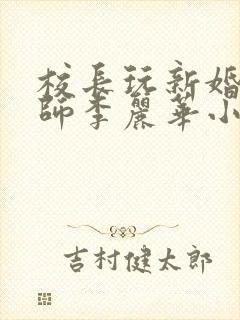 校長玩新婚
師李麗華小
吉村健太郎